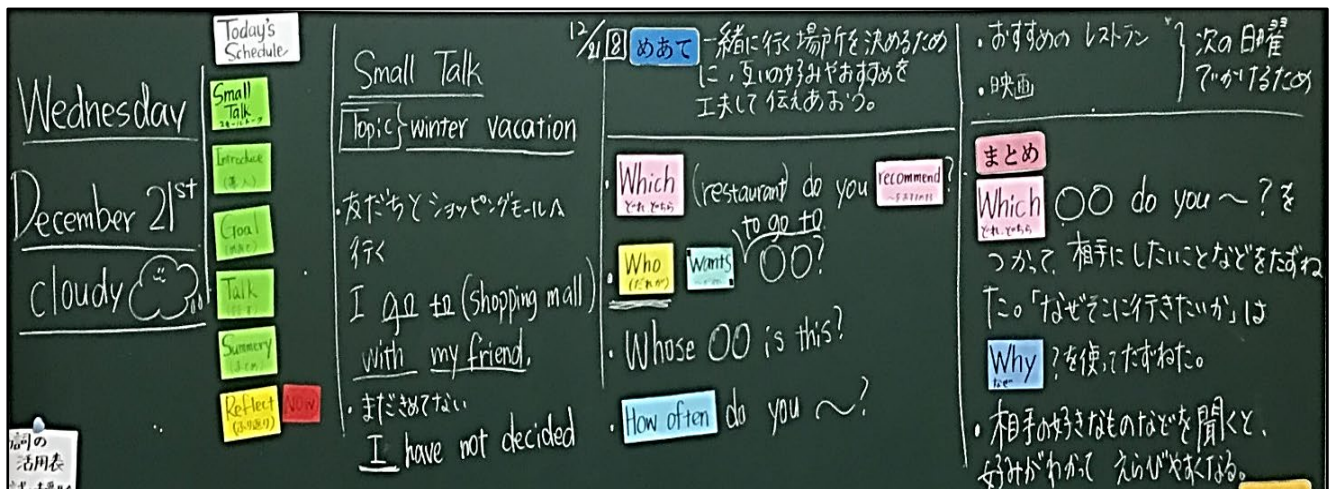 Wednesday
December 21st
cloudy
詞の
活用表
Today's
Schedule
Small
Talk
スモールトーク
Introduce
(導入)
Goal
(めあて)
Talk
Summery
(まとめ)
Reflect
(ふり返り)
NOW
Small Talk
Topic winter vacation
・友だちとショッピングモールへ
行く
I go to (shopping mall)
with my friend.
・まだきめてない
I have not decided
12/21 8 めあて 一緒に行く場所を決めるため
に、互いの好みやおすすめを
工夫して伝えあおう。
・Which (restaurant) do you recommend?
どれ、どちら
to go to
・Who wants ○○?
(だれが)
・Whose ○○ is this?
・How often do you ～?
・おすすめのレストラン
・映画
次の日曜
でかけるため
まとめ
Which ○○ do you ～?を
どれ、どちら
つかって、相手にしたいことなどをたずね
た。「なぜそこに行きたいか」は
Why ?を使ってたずねた。
なぜ
・相手の好きなものなどを聞くと、
好みがわかって えらびやすくなる。